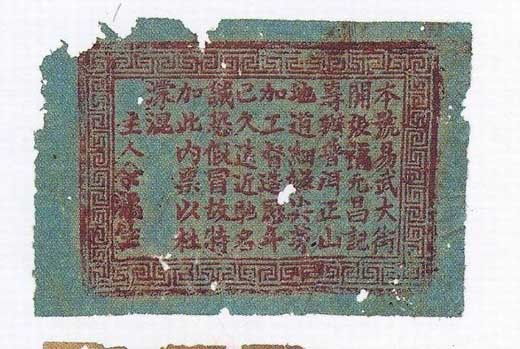 本號易武大街
開設福元昌記
專辦普洱正山
地道細嫩芽
加工督造歷年
已久遠近馳名
誠恐假冒故特
加此內票以杜
濛混
主人余福生